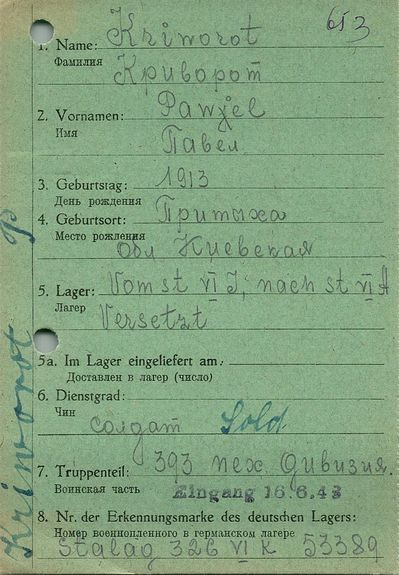 653
1. Name: Kriworot
Фамилия
Криворот
2. Vornamen: Pawel
Имя
Павел
3. Geburtstag: 1913
День рождения
4. Geburtsort: Притыха
Место рождения
Обл Киевская
5. Lager: Vom st VI J, nach st VI A
Лагер
Versetzt
5a. Im Lager eingeliefert am:
Доставлен в лагер (число)
6. Dienstgrad:
Чин
солдат Sold
7. Truppenteil: 393 пех дивизия.
Воинская часть Eingang 16.6.43
8. Nr. der Erkennungsmarke des deutschen Lagers:
Номер военнопленного в германском лагере
Stalag 326 VI K 53389
Kriworot P